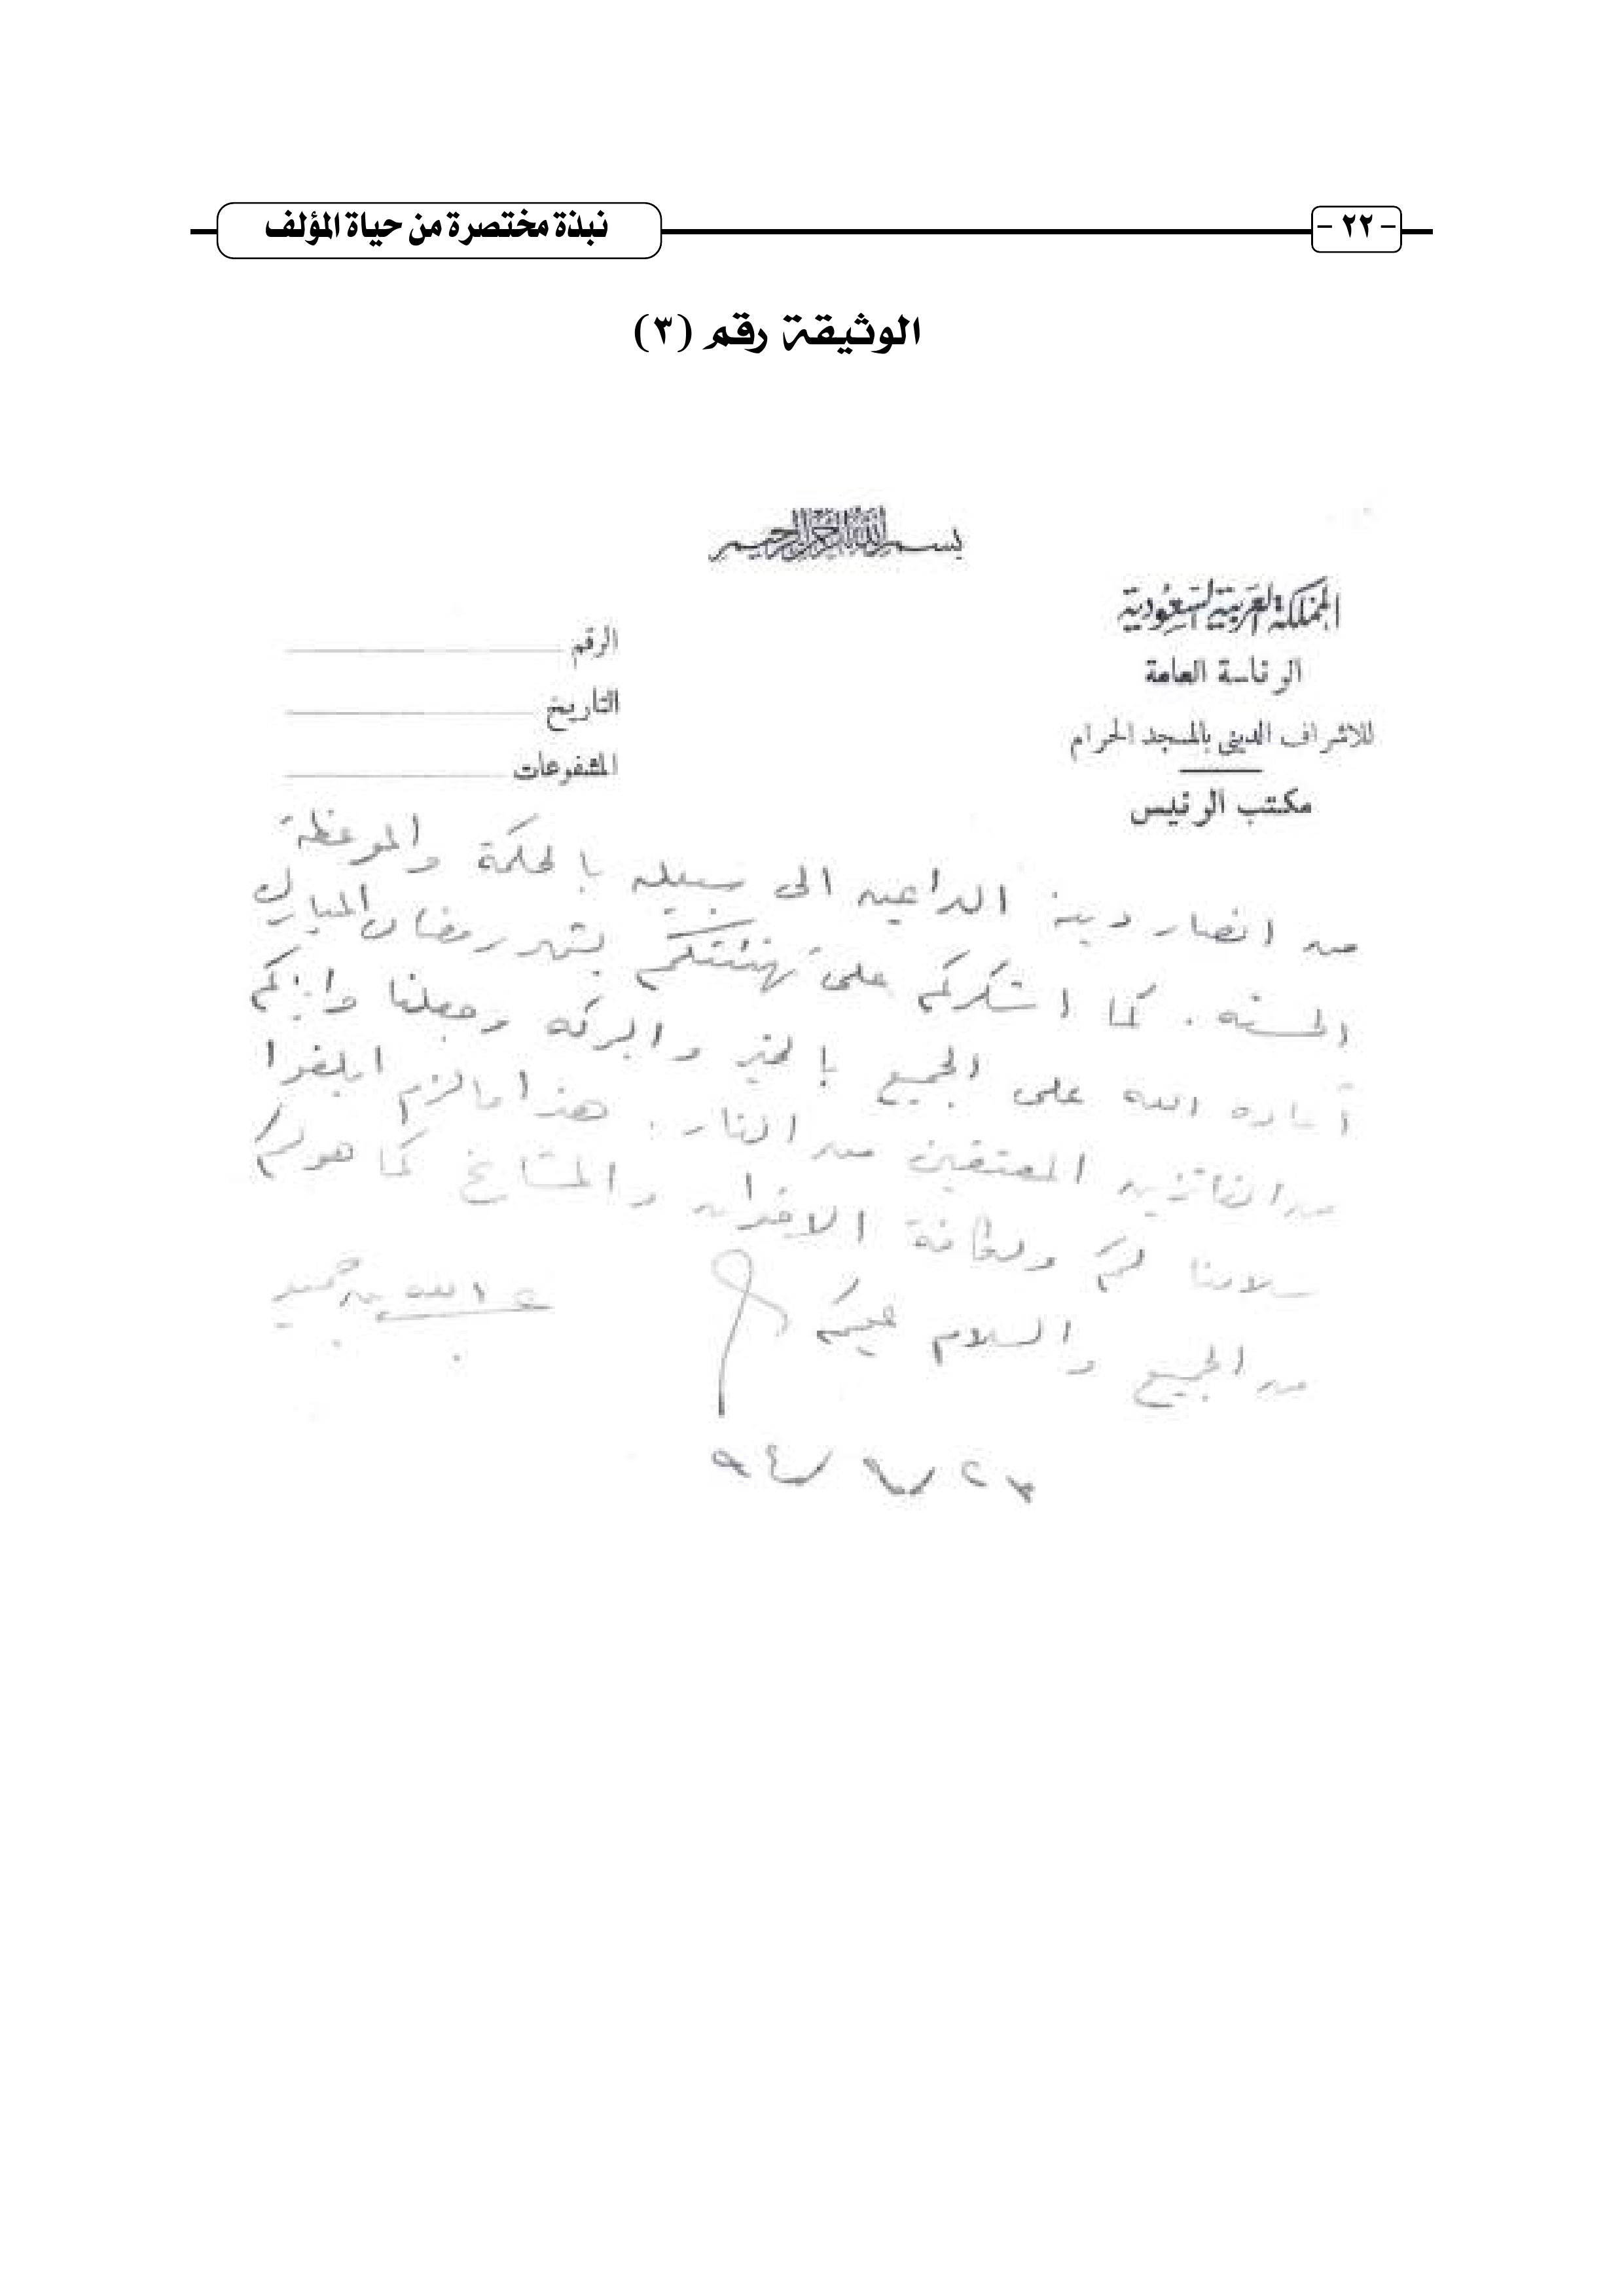 نبذة مختصرة من حياة المؤلف
- ٢٢ -
الوثيقة رقم (٣)
بسم الله الرحمن الرحيم
المملكة العربية السعودية
الرئاسة العامة
للاشراف الديني بالمسجد الحرام
مكتب الرئيس
الرقم
التاريخ
المشفوعات
من انصار دينه الداعين الى سبيله بالحكمة والموعظة
الحسنه . كما اشكركم على تهنئتكم بشهر رمضان المبارك
أعاده الله على الجميع بالخير والبركه وجعلنا واياكم
من الفائزين المعتقين من النار . هذا مالزم ابلغوا
سلامنا لكم ولكافة الاخوان والمشايخ كما هو لكم
من الجميع والسلام عليكم
عبدالله بن حميد
٢٣/٩/٩٤